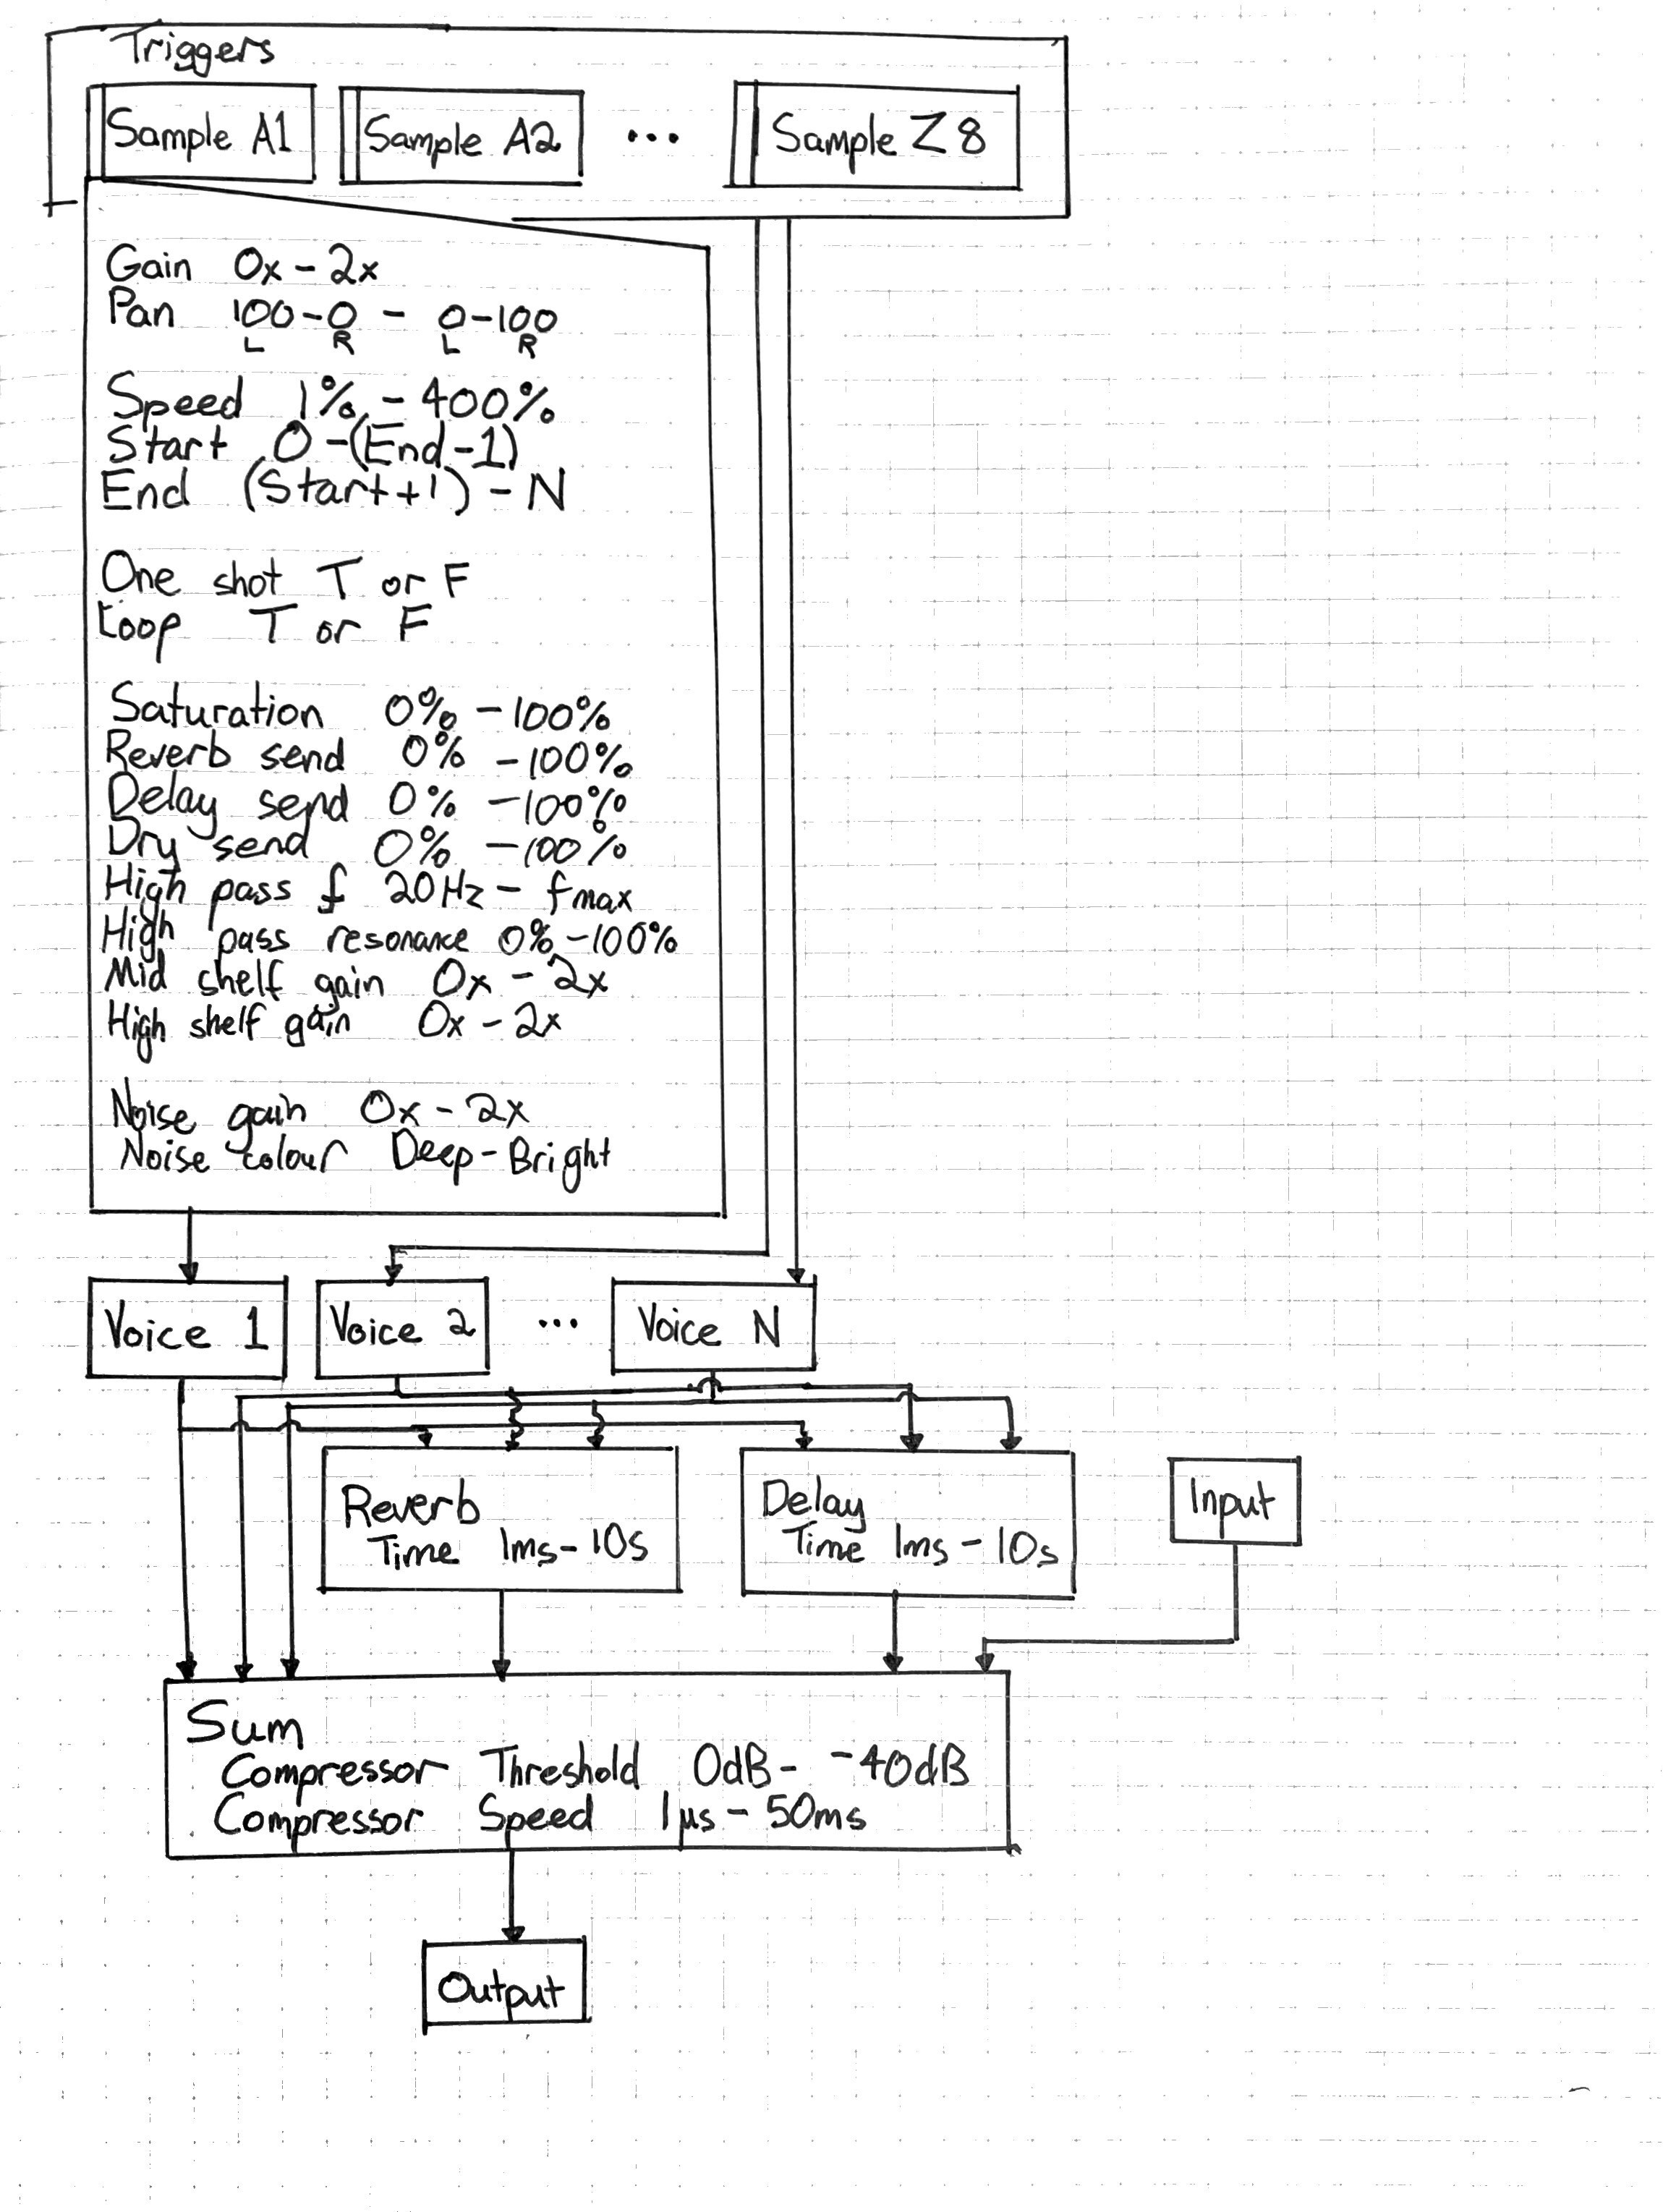 Triggers
Sample A1 Sample A2 ... Sample Z8
Gain 0x - 2x
Pan 100-0 - 0-100
L R L R
Speed 1% - 400%
Start 0 -(End-1)
End (Start+1) - N
One shot T or F
Loop T or F
Saturation 0% - 100%
Reverb send 0% - 100%
Delay send 0% - 100%
Dry send 0% - 100%
High pass f 20Hz - fmax
High pass resonance 0% - 100%
Mid shelf gain 0x - 2x
High shelf gain 0x - 2x
Noise gain 0x - 2x
Noise colour Deep - Bright
Voice 1 Voice 2 ... Voice N
Reverb
Time 1ms - 10s
Delay
Time 1ms - 10s
Input
Sum
Compressor Threshold 0dB - -40dB
Compressor Speed 1µs - 50ms
Output